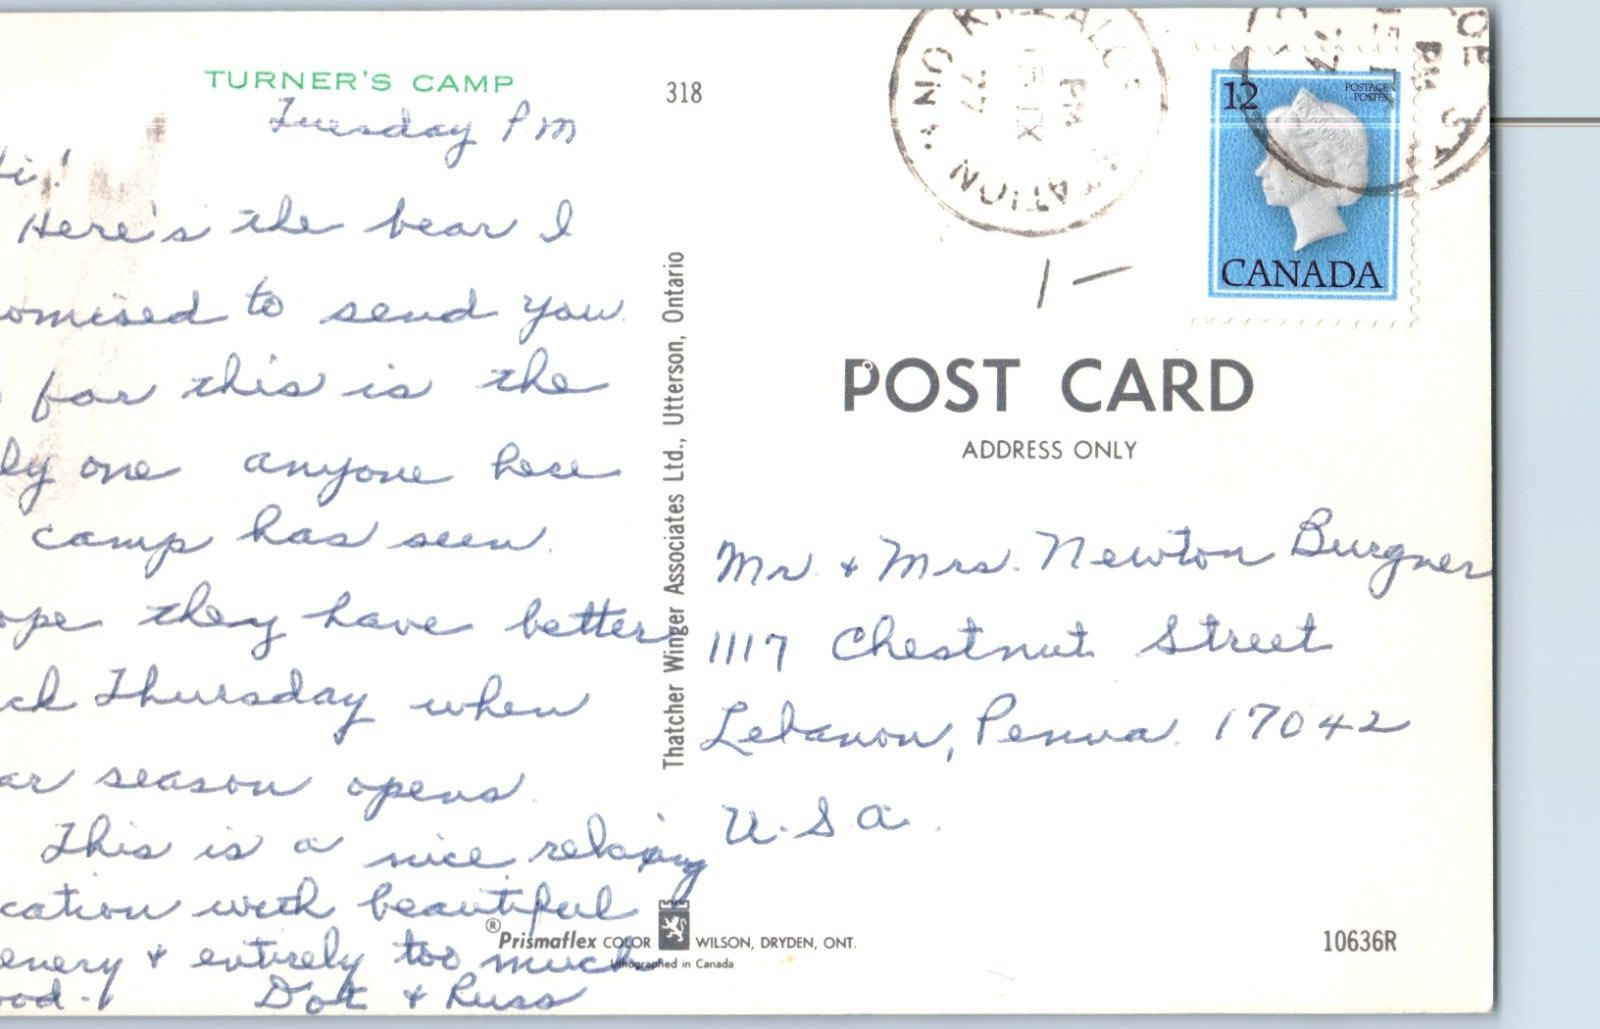 TURNER'S CAMP
318
Tuesday Pm
Hi!
Here's the bear I
omised to send you.
far this is the
ly one anyone here
camp has seen.
ope they have better
ck Thursday when
ar season opens.
This is a nice relaxing
cation with beautiful
enery & entirely too much
ood. Dot & Russ
Thatcher Winger Associates Ltd., Utterson, Ontario
PM
IX
77
STATION
12
POSTAGE
POSTES
CANADA
1 —
POST CARD
ADDRESS ONLY
Mr. & Mrs. Newton Burgner
1117 Chestnut Street
Lebanon, Penna. 17042
U.S.A.
® Prismaflex COLOR WILSON, DRYDEN, ONT.
Lithographed in Canada
10636R